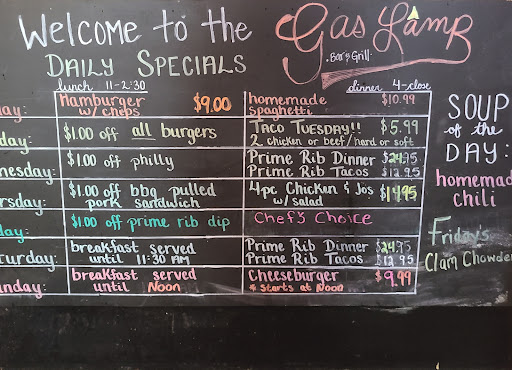 Welcome to the
Gas Lamp
Bar & Grill
Daily Specials
lunch 11-2:30
dinner 4-close
ay:
Hamburger
w/ chips
$9.00
homemade
spaghetti
$10.99
day:
$1.00 off all burgers
Taco Tuesday!!
2 chicken or beef/hard or soft
$5.99
nesday:
$1.00 off philly
Prime Rib Dinner $24.95
Prime Rib Tacos $12.95
rsday:
$1.00 off bbq pulled
pork sandwich
4pc Chicken & Jos
w/salad
$14.95
day:
$1.00 off prime rib dip
Chef's Choice
turday:
breakfast served
until 11:30 AM
Prime Rib Dinner $24.95
Prime Rib Tacos $12.95
unday:
breakfast served
until Noon
Cheeseburger
* starts at Noon
$9.99
Soup
of the
Day:
homemad
chili
Friday's
Clam Chowder